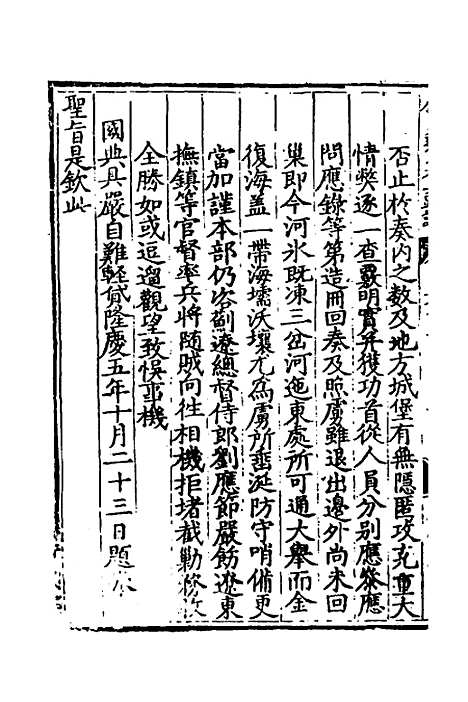 否止於奏內之數及地方城堡有無隱匿攻克重大
情獘逐一查覈明實并獲功首從人員分別應叅應
問應錄等第造冊回奏及照虜雖退出邊外尚未回
巢即今河氷既凍三岔河迤東處所可通大舉而金
復海盖一帶海壖沃壤尤為虜所垂涎防守哨備更
當加謹本部仍咨薊遼總督侍郎劉應節嚴飭遼東
撫鎮等官督率兵將随賊向徃相機拒堵截勦務收
全勝如或逗遛觀望致悞事機
國典具嚴自難輕貸隆慶五年十月二十三日題奉
聖旨是欽此